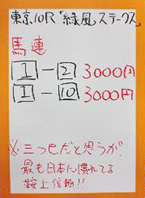 東京10R「緑風ステークス」
馬連
1-2 3000円
1-10 3000円
※三つ巴だと思うが
最も日本に慣れてる
鞍上信頼!!